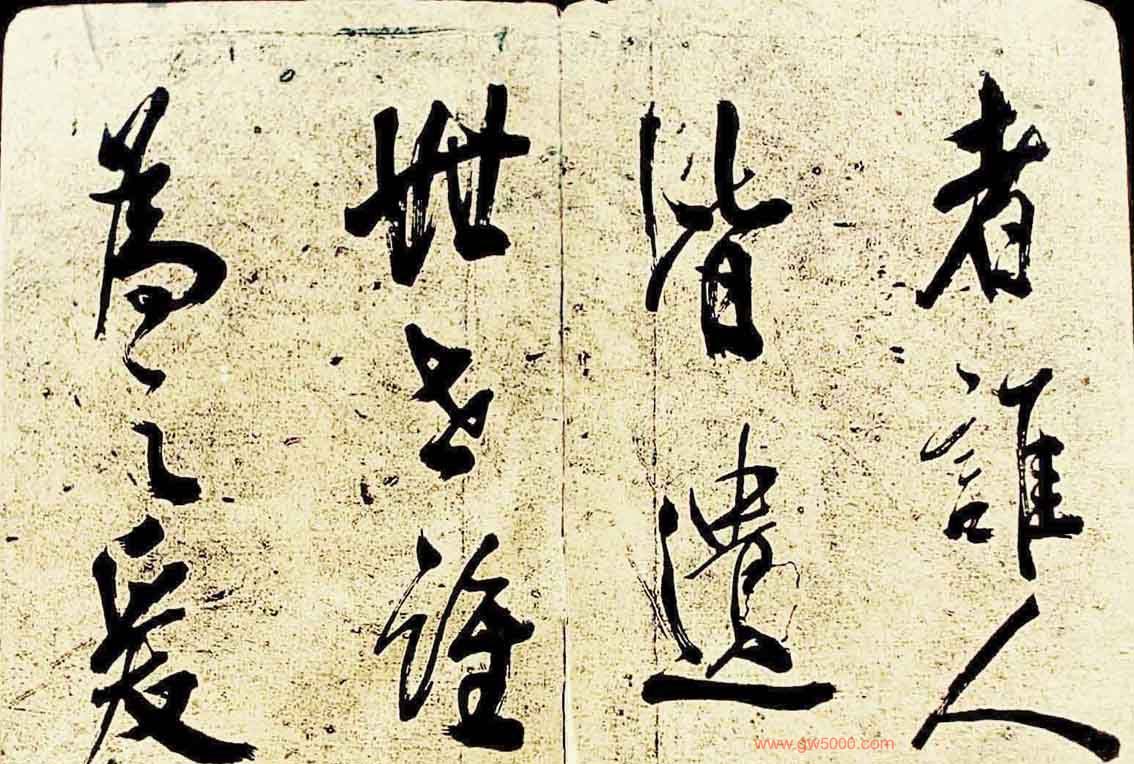 者誰人
皆遺
世誰
為之
www.gw5000.com